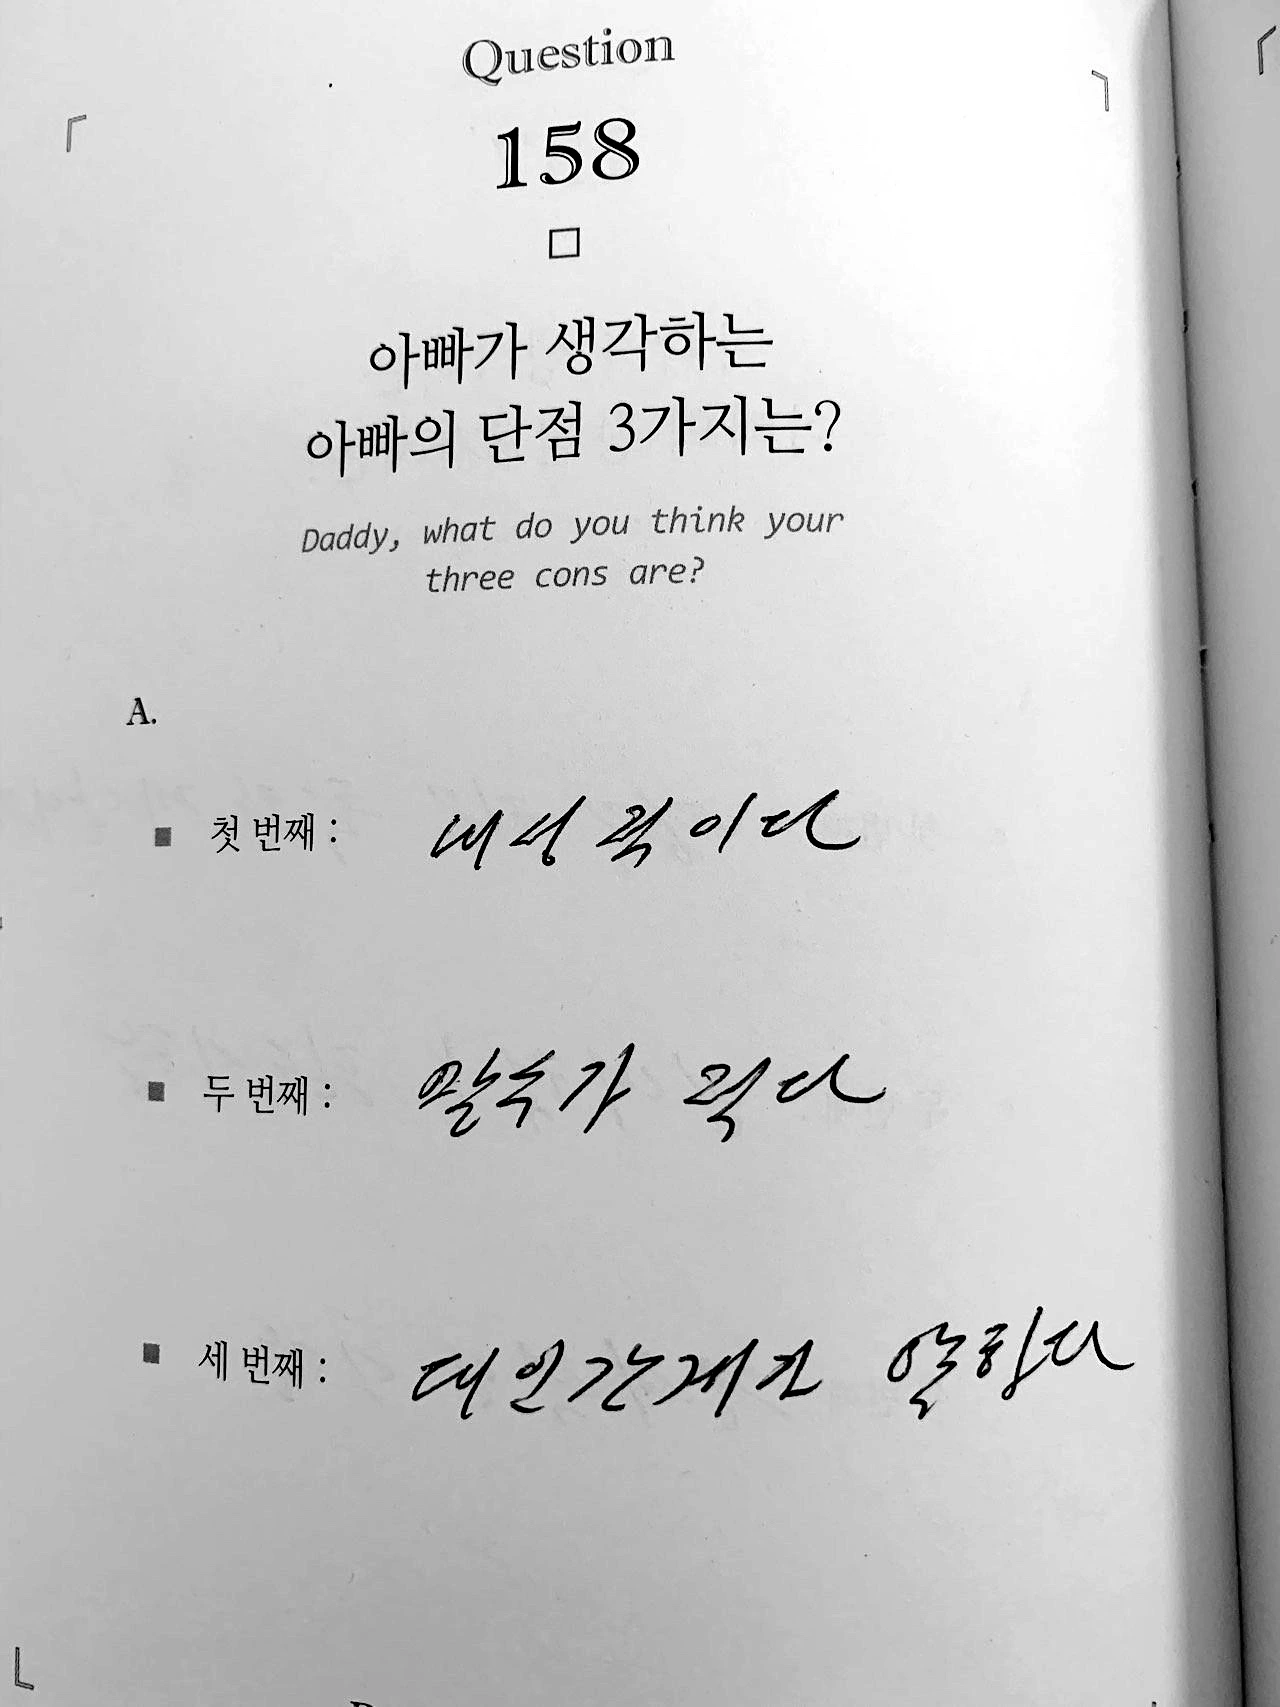 Question
158
아빠가 생각하는
아빠의 단점 3가지는?
Daddy, what do you think your
three cons are?
A.
첫 번째 : 내성적이다
두 번째 : 말수가 적다
세 번째 : 대인관계가 약하다